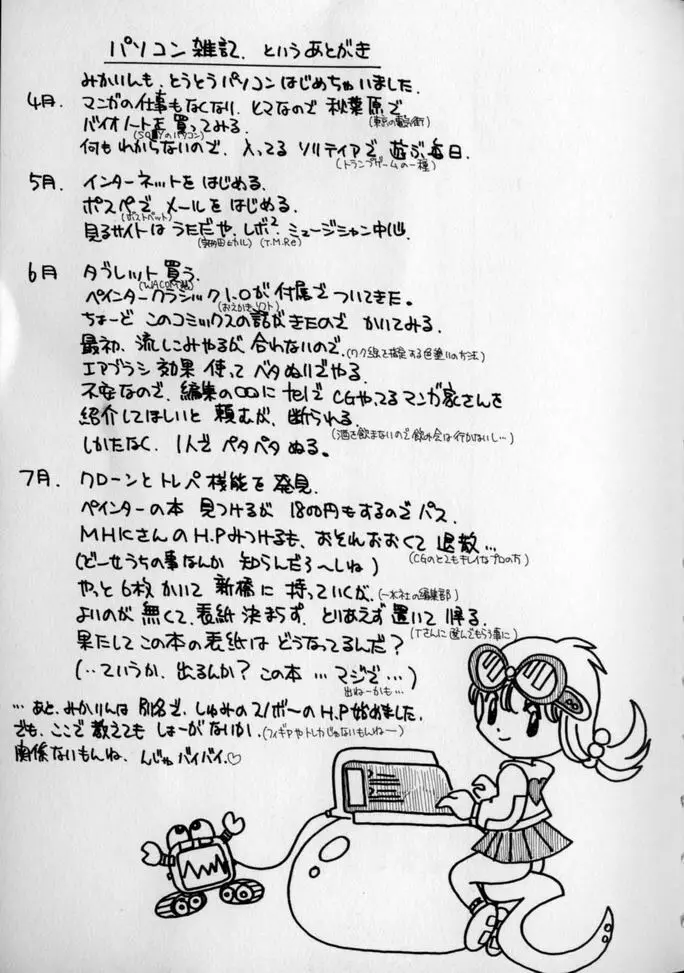 パソコン雑記、というあとがき
みかりんも、とうとうパソコンはじめちゃいました。
4月. マンガの仕事もなくなり、ヒマなので 秋葉原で
(東京の電気街)
バイオノートを買ってみる。
(SONYのパソコン)
何もわからないので、入ってる ソリティアで 遊ぶ毎日.
(トランプゲームの一種)
5月. インターネットを はじめる.
ポスペで メールを はじめる.
(ポストペット)
見るサイトは うただや、レボ2. ミュージシャン中心.
(宇多田ヒカル) (T.M.Re)
6月 タブレット 買う.
ペインタークラシック1.0が 付属で ついてきた。
(おえかきソフト)
ちょーど このコミックスの話がきたので かいてみる.
最初、流しこみやるが 合わないので、(ワク線で指定する色塗りの方法)
エアブラシ 効果 使って ベタぬりでやる.
不安なので、編集の○○に telで CGやってるマンガ家さんを
紹介してほしいと 頼むが、断られる.
(酒を飲まないので飲み会は行かないし…)
しかたなく、1人で ペタペタ ぬる。
7月. クローンと トレペ 機能を 発見.
ペインターの本 見つけるが 1800円もするので パス.
MHKさんの H.Pみつけるも、おそれおおくて 退散…
(CGのとてもキレイなプロの方)
(どーせうちの事なんか 知らんだろ〜しね)
やっと 6枚 かいて 新橋に 持っていくが、(一水社の編集部)
よいのが 無くて、表紙 決まらず、とりあえず 置いて 帰る.
(Tさんに選んでもらう事に)
果たして この本の表紙は どうなってるんだ?
(‥ていうか、出るんか? この本 … マジで …)
出ねーかも…
… あと、みかりんは 別名で、しゅみのスノボーの H.P 始めました.
でも、ここで 教えても しょーがないか. (フィギアやトレカじゃないもんねー)
関係ないもんね、んじゃ バイバイ.♡